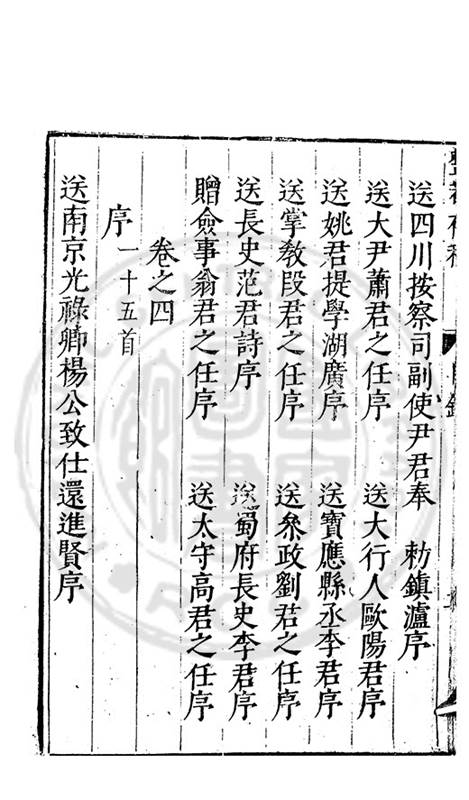 送四川按察司副使尹君奉　勅鎮瀘序
送大尹蕭君之任序　送大行人歐陽君序
送姚君提學湖廣序　送寶應縣丞李君序
送掌敎段君之任序　送叅政劉君之任序
送長史范君詩序　送蜀府長史李君序
贈僉事翁君之任序　送太守高君之任序
卷之四
序一十五首
送南京光祿卿楊公致仕還進賢序